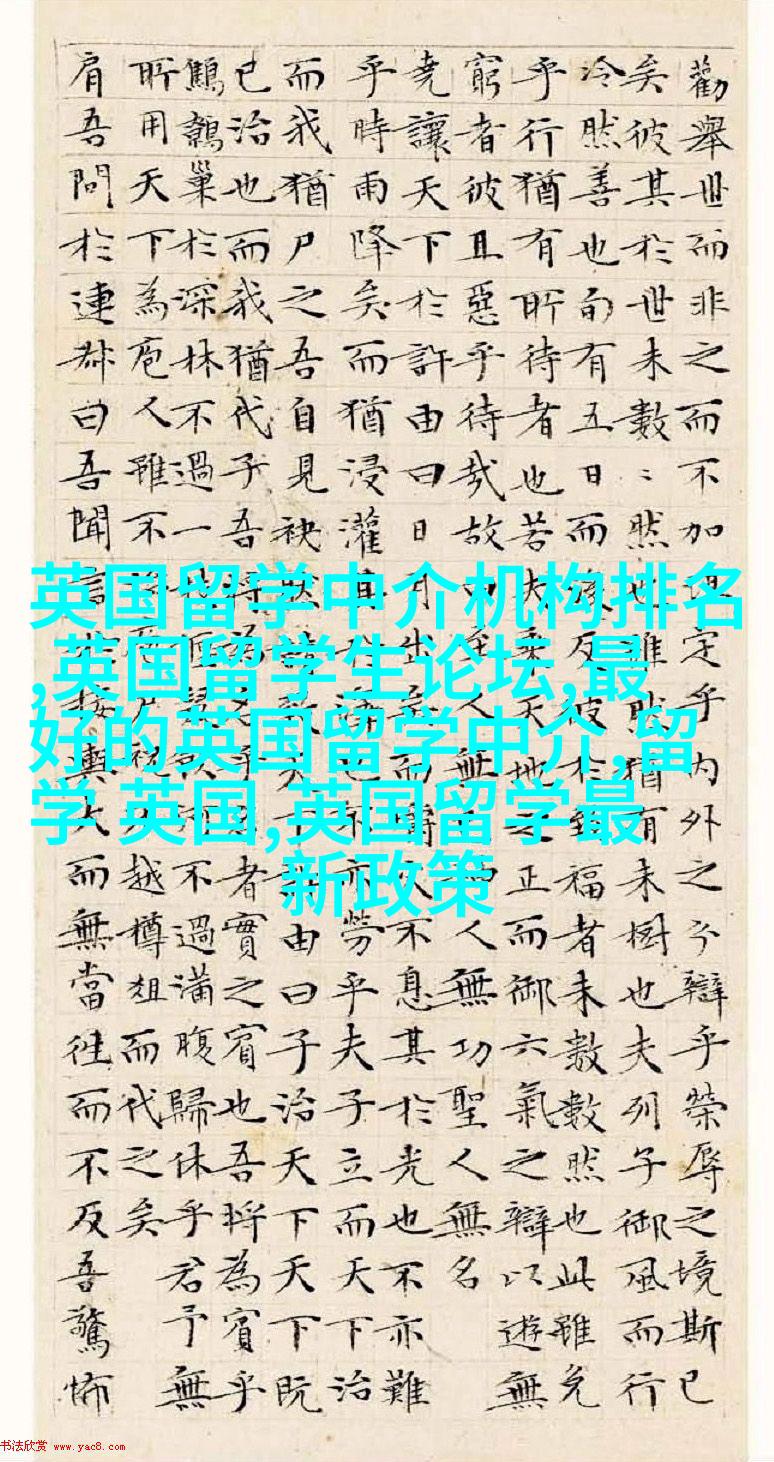 勸舉世而非之而不加沮定乎内外之分辯乎榮辱之境斯已
矣彼其於世未數〻然也雖然猶有未樹也夫列子御風而行
冷然善也旬有五日而後反彼於致福者未數數然也此雖免
乎行猶有所待者也若夫乘天地之正而御六氣之辯以遊無
窮者彼且惡乎待哉故曰至人無人無功聖人無名
堯讓天下於許由曰日月出矣而爝火不息其於光也不亦難
乎時雨降矣而猶浸灌其於澤也不亦勞乎夫子立而天下治
而我猶尸之吾自見缺然請致天下許由曰子治天下天下既
已治也而我猶代子吾將為名乎名者實之賓也吾將為賓乎
鷦鷯巢於深林不過一枝偃鼠飲河不過滿腹歸休乎君予無
所用天下為庖人雖不治庖尸祝不越樽俎而代之矣
肩吾問於連叔曰吾聞言於接輿大而無當往而不反吾驚怖
英国留学中介机构排名
,英国留学生论坛,最
好的英国留学中介,留
学 英国,英国留学最
新政策
书法欣赏 www.yac8.com